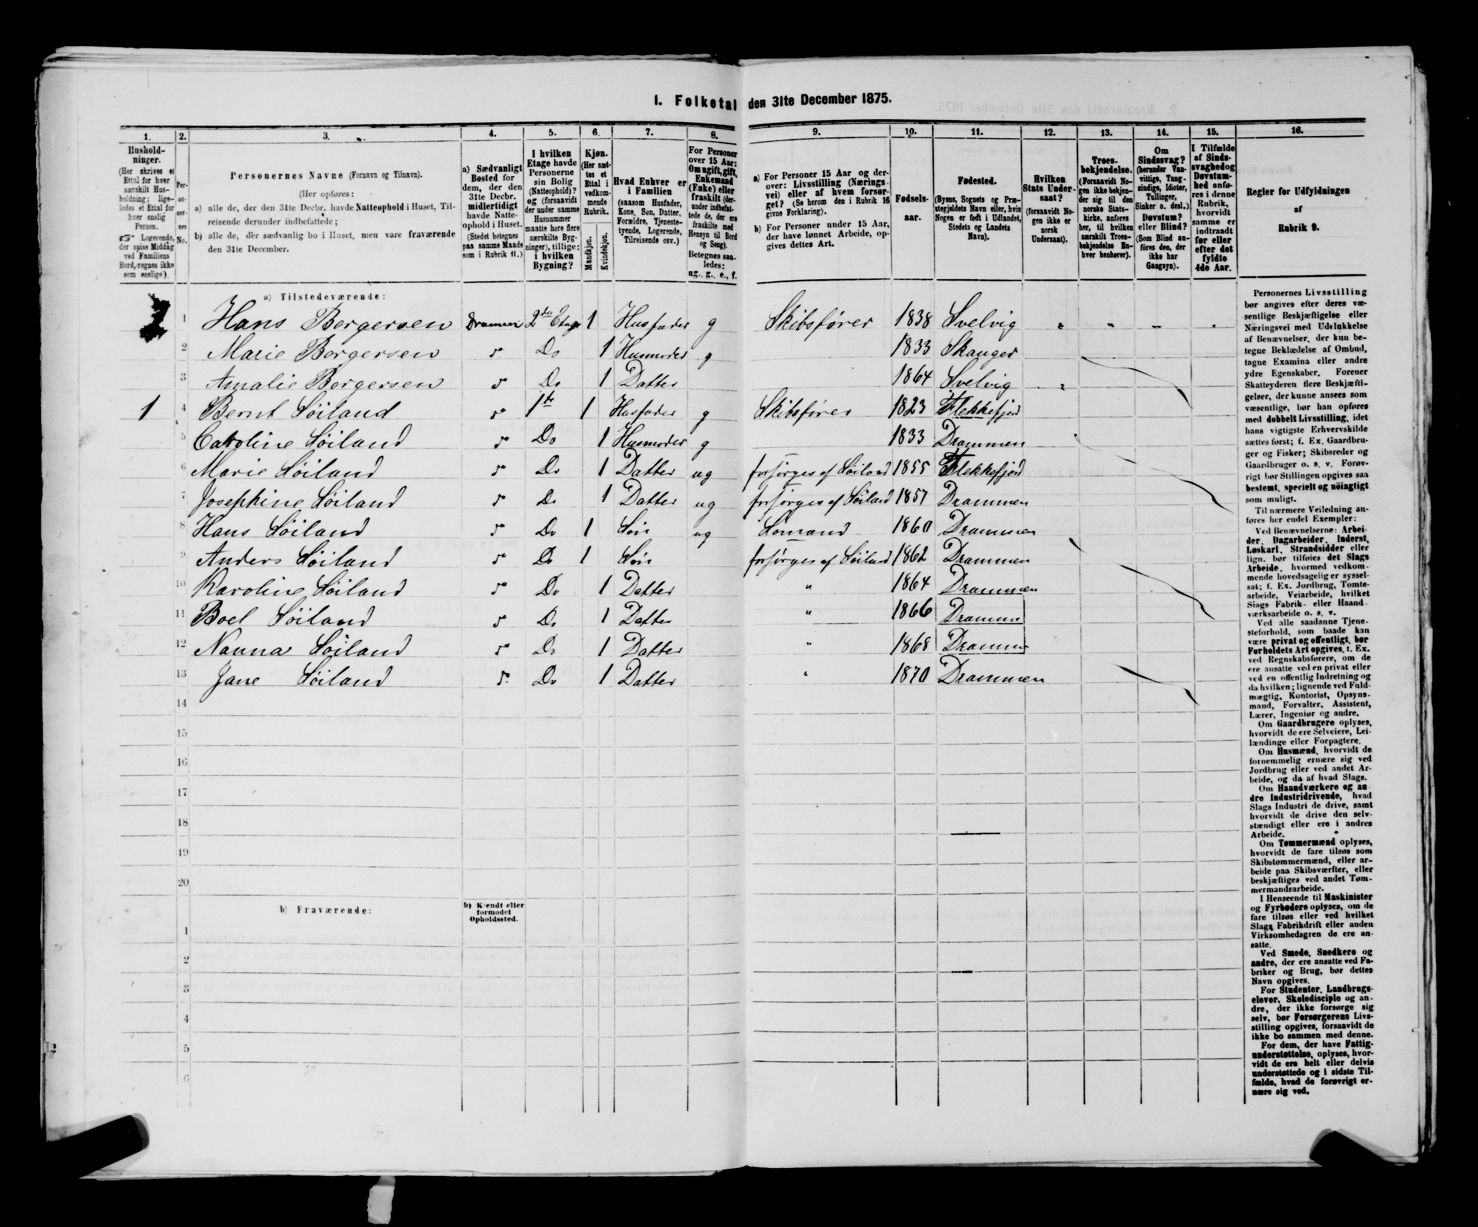 I. Folketal den 31te December 1875.
1. 2. 3. 4. 5. 6. 7. 8. 9. 10. 11. 12. 13. 14. 15. 16.
Hushold-
ninger.
(Her skrives et
Ettal for hver
særskilt Hus-
holdning; lige-
ledes et Ettal for
hver enslig
Person.
☞ Logerende,
der spise Middag
ved Familiens
Bord, regnes ikke
som enslige).
Per-
so-
ner-
nes
No.
Personernes Navne (Fornavn og Tilnavn).
(Her opføres:
a) alle de, der den 31te Decbr. havde Natteophold i Huset, Til-
reisende derunder indbefattede;
b) alle de, der sædvanlig bo i Huset, men vare fraværende
den 31te December.
a) Sædvanligt
Bosted for
dem, der den
31te Decbr.
midlertidigt
havde Natte-
ophold i Huset.
(Stedet betegnes
paa samme Maade
som i Rubrik 11.)
I hvilken
Etage havde
Personerne
sin Bolig
(Natteophold)?
og (forsaavidt
der under samme
Husnummer
maatte høre flere
særskilte Byg-
ninger), tillige:
i hvilken
Bygning?
Kjøn.
(Her sæt-
tes et
Ettal i
vedkom-
mende
Rubrik.
Mandkjøn.
Kvindekjøn.
Hvad Enhver er
i Familien
(saasom Husfader,
Kone, Søn, Datter,
Forældre, Tjeneste-
tyende, Logerende,
Tilreisende osv.)
For Personer
over 15 Aar:
Om ugift, gift,
Enkemand
(Enke) eller
fraskilt (der-
under indbefat-
tede de, der ere
fraskilte med
Hensyn til Bord
og Seng).
Betegnes saa-
ledes:
ug., g., e., f.
a) For Personer 15 Aar og der-
over: Livsstilling (Nærings-
vei) eller af hvem forsør-
get? (Se herom den i Rubrik 16
givne Forklaring).
b) For Personer under 15 Aar,
der have lønnet Arbeide, op-
gives dettes Art.
Fødsels-
aar.
Fødested.
(Byens, Sognets og Præ-
stegjeldets Navn eller, hvis
Nogen er født i Udlandet,
Stedets og Landets
Navn).
Hvilken
Stats Under-
saat?
(forsaavidt No-
gen ikke er
norsk
Undersaat).
Troes-
bekjendelse.
(Forsaavidt No-
gen ikke bekjen-
der sig til den
norske Stats-
kirke, anføres
her, til hvilken
særskilt Troes-
bekjendelse En-
hver henhører).
Om
Sindssvag?
(herunder Van-
vittige, Tung-
sindige, Idioter,
Tullinger,
Sinker o. desl.).
Døvstum?
eller Blind?
(Som Blind an-
føres den, der
ikke har
Gangsyn).
I Tilfælde
af Sinds-
svaghed og
Døvstum-
hed anfø-
res i denne
Rubrik,
hvorvidt
samme er
indtraadt
før eller
efter det
fyldte
4de Aar.
Regler for Udfyldningen
af
Rubrik 9.
a) Tilstedeværende:
1 Hans Borgersen Drammen 2den Etage 1 Husfader g Skibsfører 1838 Svelvig
2 Marie Borgersen Do 1 Husmoder g 1833 Skanger
3 Amalie Borgersen Do 1 Datter 1864 Svelvig
1 4 Bernt Söiland 1ste 1 Husfader g Skibsfører 1823 Flekkefjord
5 Caroline Söiland Do 1 Husmoder g 1833 Drammen
6 Marie Söiland Do 1 Datter ug forsørges af Söiland 1855 Flekkefjord
7 Josephine Söiland Do 1 Datter ug forsørges af Söiland 1857 Drammen
8 Hans Söiland Do 1 Søn ug Sømand 1860 Drammen
9 Anders Söiland Do 1 Søn forsørges af Söiland 1862 Drammen
10 Karoline Söiland Do 1 Datter " 1864 Drammen
11 Boel Söiland Do 1 Datter " 1866 Drammen
12 Nanna Söiland Do 1 Datter " 1868 Drammen
13 Jane Söiland Do 1 Datter " 1870 Drammen
14
15
16
17
18
19
20
b) Fraværende:
b) Kjendt eller
formodet
Opholdssted.
1
2
3
4
5
6
Personernes Livsstilling
bør angives efter deres væ-
sentlige Beskjæftigelse eller
Næringsvei med Udelukkelse
af Benævnelser, der kun be-
tegne Beklædelse af Ombud,
tagne Examina eller andre
ydre Egenskaber. Forener
Skatteyderen flere Beskjæfti-
gelser, der kunne ansees som
væsentlige, bør han opføres
med dobbelt Livsstilling, idet
hans vigtigste Erhvervskilde
sættes først; f. Ex. Gaardbru-
ger og Fisker; Skibsreder og
Gaardbruger o. s. v. Forøv-
rigt bør Stillingen opgives saa
bestemt, specielt og nöiagtigt
som muligt.
Til nærmere Veiledning an-
føres her endel Exempler:
Ved Benævnelserne: Arbei-
der, Dagarbeider, Inderst,
Løskarl, Strandsidder eller
lign. bør tilføies det Slags
Arbeide, hvormed vedkom-
mende hovedsagelig er syssel-
sat; f. Ex. Jordbrug, Tomte-
arbeide, Veiarbeide, hvilket
Slags Fabrik- eller Haand-
værksarbeide o. s. v.
Ved alle saadanne Tjene-
steforhold, som baade kan
være privat og offentligt, bør
Forholdets Art opgives, t. Ex.
ved Regnskabsførere, om de
ere ansatte ved en privat eller
ved en offentlig Indretning og
da hvilken; lignende ved Fuld-
mægtig, Kontorist, Opsyns-
mand, Forvalter, Assistent,
Lærer, Ingeniør og andre.
Om Gaardbrugere oplyses,
hvorvidt de ere Selveiere, Lei-
lændinge eller Forpagtere.
Om Husmænd, hvorvidt de
fornemmelig ernære sig ved
Jordbrug eller ved andet Ar-
beide, og da af hvad Slags.
Om Haandværkere og an-
dre Industridrivende, hvad
Slags Industri de drive, samt
hvorvidt de drive den selv-
stændigt eller ere i andres
Arbeide.
Om Tømmermænd oplyses,
hvorvidt de fare tilsøs som
Skibstømmermænd, eller ar-
beide paa Skibsværfter, eller
beskjæftiges ved andet Tøm-
mermandsarbeide.
I Henseende til Maskinister
og Fyrbødere oplyses, om de
fare tilsøs eller ved hvilket
Slags Fabrikdrift eller anden
Virksomhedsgren de ere an-
satte.
Ved Smede, Snedkere og
andre, der ere ansatte ved Fa-
briker og Brug, bør dettes
Navn opgives.
For Studenter, Landbrugs-
elever, Skoledisciple og an-
dre, der ikke forsørge sig
selv, bør Forsørgerens Livs-
stilling opgives, forsaavidt de
ikke bo sammen med denne.
For dem, der have Fattig-
understøttelse, oplyses, hvor-
vidt de ere helt eller delvis
understøttede og i sidste Til-
fælde, hvad de forøvrigt er-
nære sig ved.